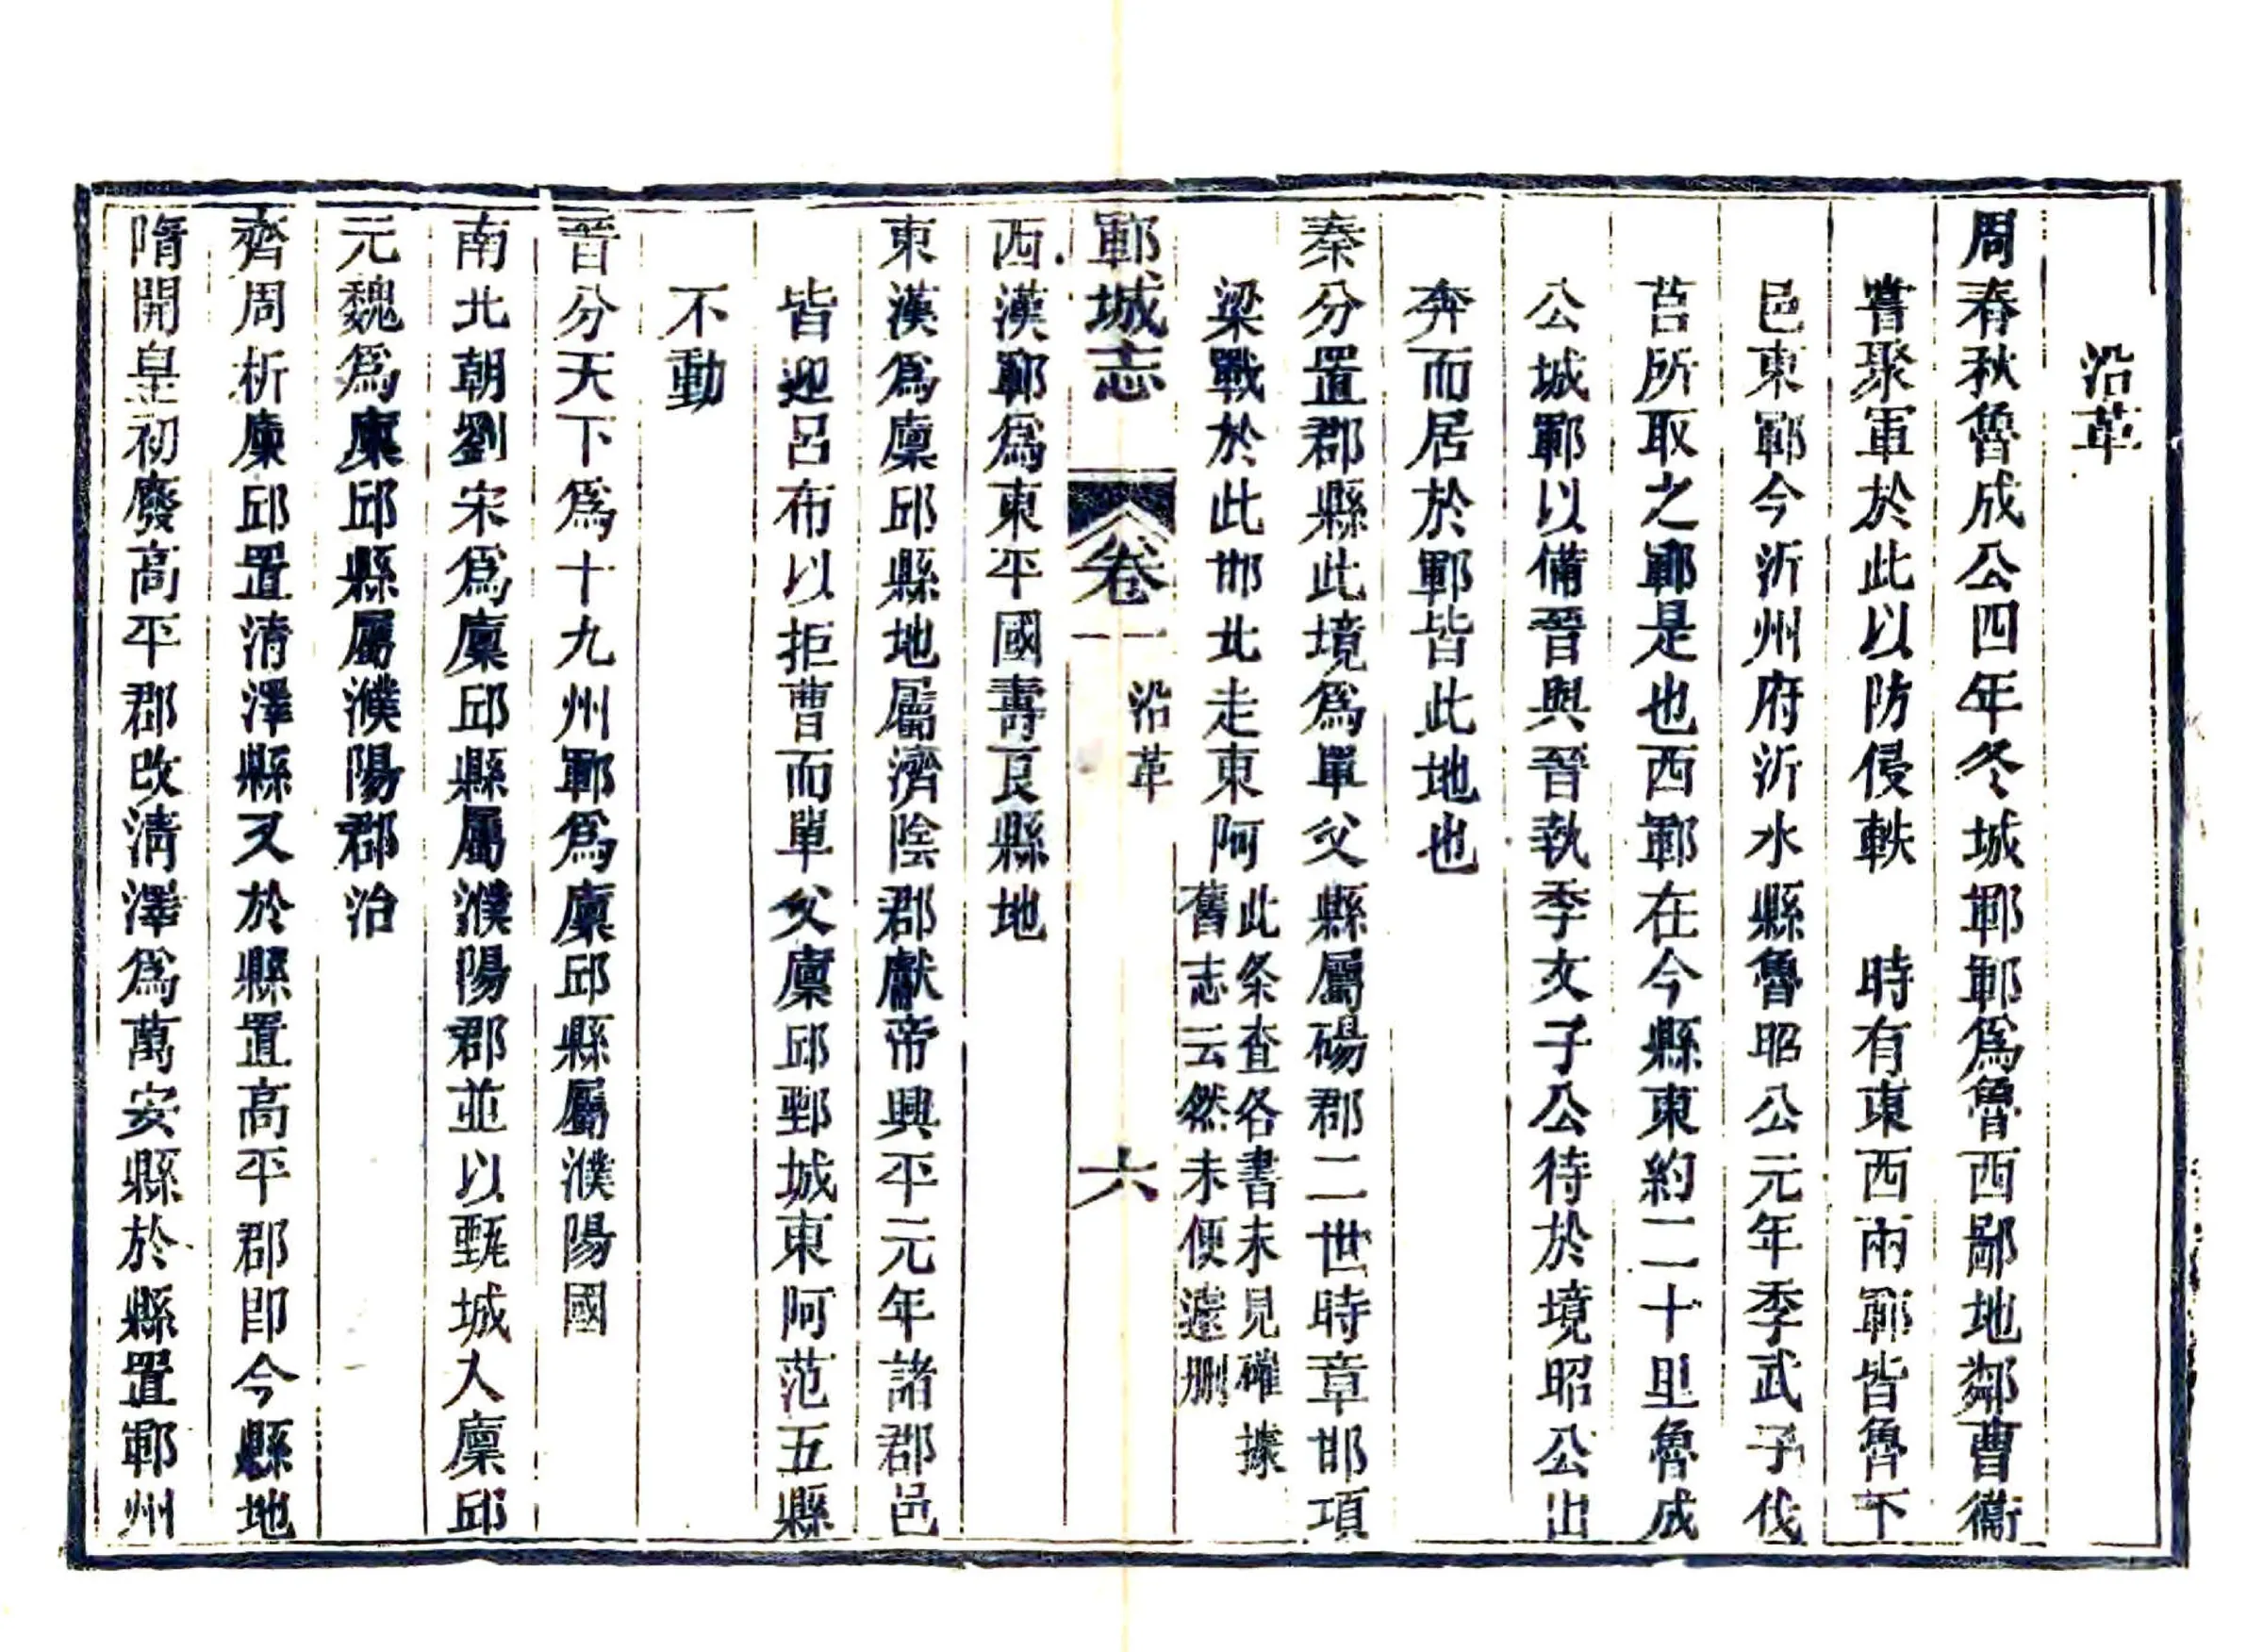 沿革
周春秋魯成公四年冬城鄆鄆爲魯西鄙地鄰曹衞
嘗聚軍於此以防侵軼　時有東西兩鄆皆魯下
邑東鄆今沂州府沂水縣魯昭公元年季武子伐
莒所取之鄆是也西鄆在今縣東約二十里魯成
公城鄆以備晉與晉執季文子公待於境昭公出
奔而居於鄆皆此地也
秦分置郡縣此境爲單父縣屬碭郡二世時章邯項
梁戰於此邯北走東阿此条查各書未見確據
舊志云然未便遽刪
鄆城志　卷一　沿革　六
西漢鄆爲東平國壽良縣地
東漢爲廩邱縣地屬濟陰郡獻帝興平元年諸郡邑
皆迎呂布以拒曹而單父廩邱鄄城東阿范五縣
不動
晉分天下爲十九州鄆爲廩邱縣屬濮陽國
南北朝劉宋爲廩邱縣屬濮陽郡並以甄城入廩邱
元魏爲廩邱縣屬濮陽郡治
齊周析廩邱置清澤縣又於縣置高平郡卽今縣地
隋開皇初廢高平郡改清澤爲萬安縣於縣置鄆州